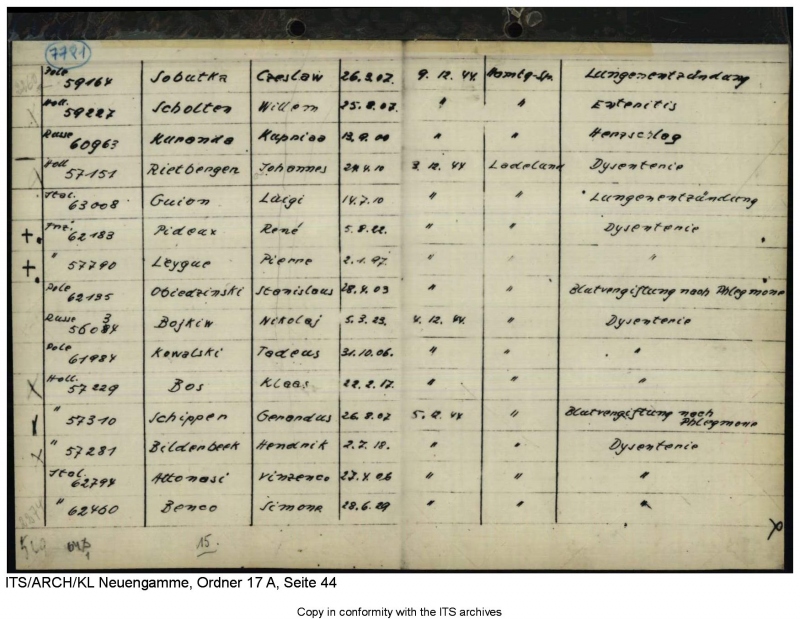 7781
Pole 59164 Sobutka Czeslaw 26.9.07. 9.12.44 Lungenentzündung
Holl. 59227 Scholten Willem 25.8.07. " " Enteritis
Russe 60963 Kuranda " " Herzschlag
Holl 57151 Rietbergen Johannes 24.4.10 3.12.44 Ladelund Dysenterie
Ital. 63008 Guion Luigi 14.7.10 " " Lungenentzündung
62183 Pideux René 5.8.22. " " Dysenterie
" 57790 Leygue Pierre 2.1.97. " " "
Pole 62195 Obiedzinski Stanislaus 28.4.03 " " Blutvergiftung nach Phlegmone
Russe 56084 3 Bojkiw Nikolaj 5.3.23. 4.12.44. " Dysenterie
Pole 61984 Kowalski Tadeus 31.10.06. " " "
Holl. 57229 Bos Klaas 22.2.17. " " "
" 57310 Schipper Gerardus 26.8.07 44 " Blutvergiftung nach Phlegmone
" 57281 Bilderbeek Hendrik 2.7.18. " " Dysenterie
Ital. 62794 Attonasi Vinzenco 27.4.06 " " "
" 62460 Benco Simone 28.6.29 " " "
15.
ITS/ARCH/KL Neuengamme, Ordner 17 A, Seite 44
Copy in conformity with the ITS archives